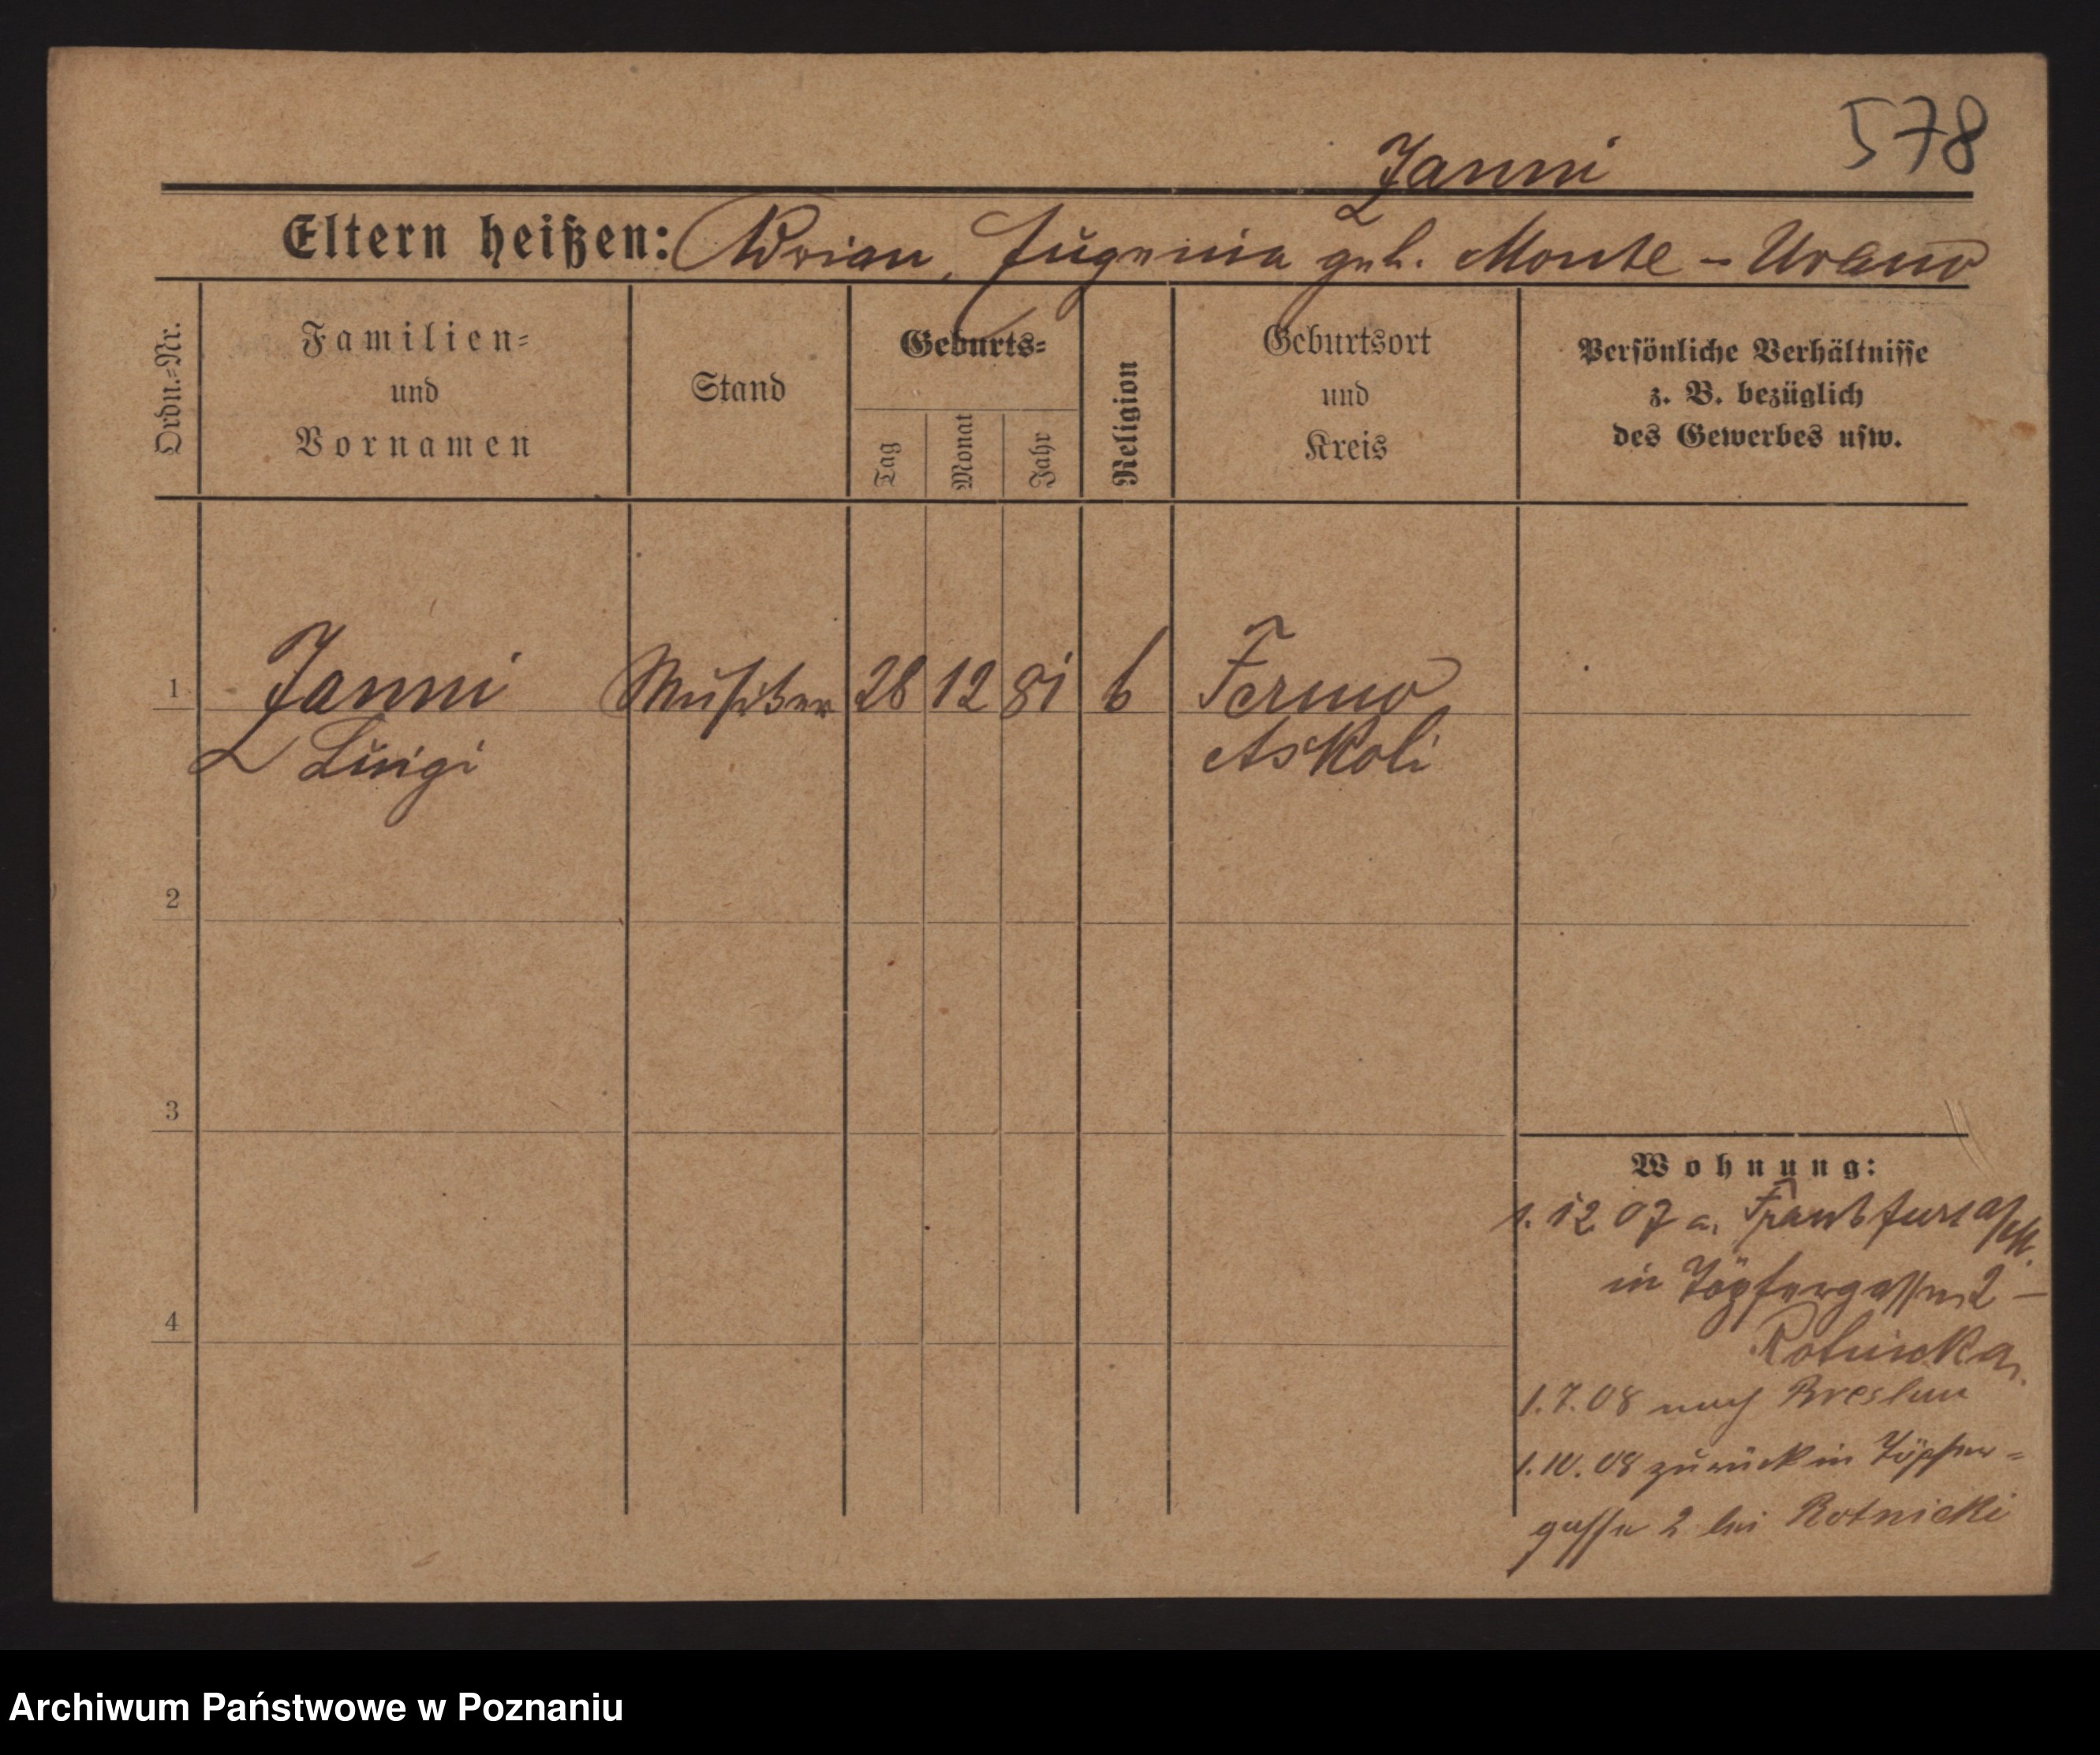 578
Janni
Eltern heißen: Adrian, Eugenia geb. Monte-Urano
Ordn.-Nr.
Familien-
und
Vornamen
Stand
Geburts-
Tag
Monat
Jahr
Religion
Geburtsort
und
Kreis
Persönliche Verhältnisse
z. B. bezüglich
des Gewerbes usw.
1 Janni Musiker 28 12 81 Fermo
Luigi Askoli
2
3
4
Wohnung:
1. 12 07 a. Frankfurt
in Töpfergasse 2 -
1.7.08 nach Breslau
1.10.08 zurück in Töpfer=
gasse 2 bei Rotnicki
Archiwum Państwowe w Poznaniu